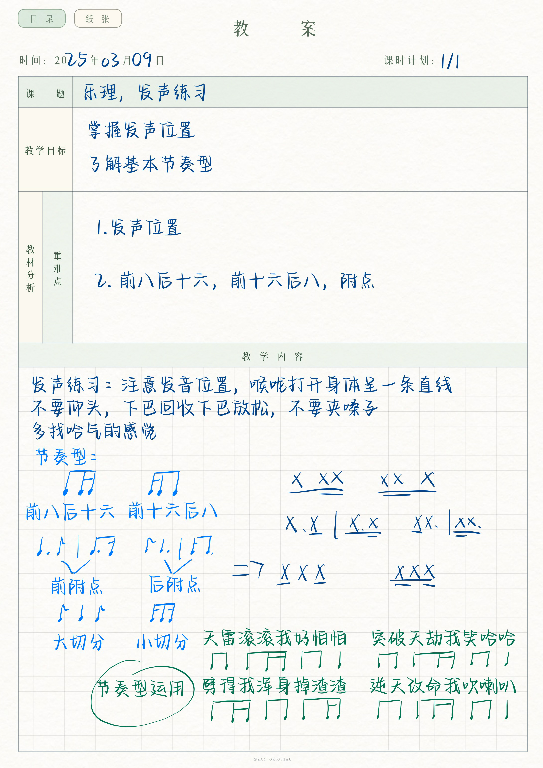 目录 纸张
教 案
时间: 2025年03月09日 课时计划: 1/1
课 题 乐理, 发声练习
教学目标 掌握发声位置
了解基本节奏型
教材分析 重难点 1.发声位置
2. 前八后十六, 前十六后八, 附点
教 学 内 容
发声练习: 注意发音位置, 喉咙打开身体呈一条直线
不要仰头, 下巴回收下巴放松, 不要夹嗓子
多找哈气的感觉
节奏型:
X XX XX X
前八后十六 前十六后八
X.X | X.X XX. | XX.
=> X X X XXX
前附点 后附点
大切分 小切分
天雷滚滚我好怕怕 突破天劫我笑哈哈
节奏型运用 劈得我浑身掉渣渣 逆天改命我吹喇叭